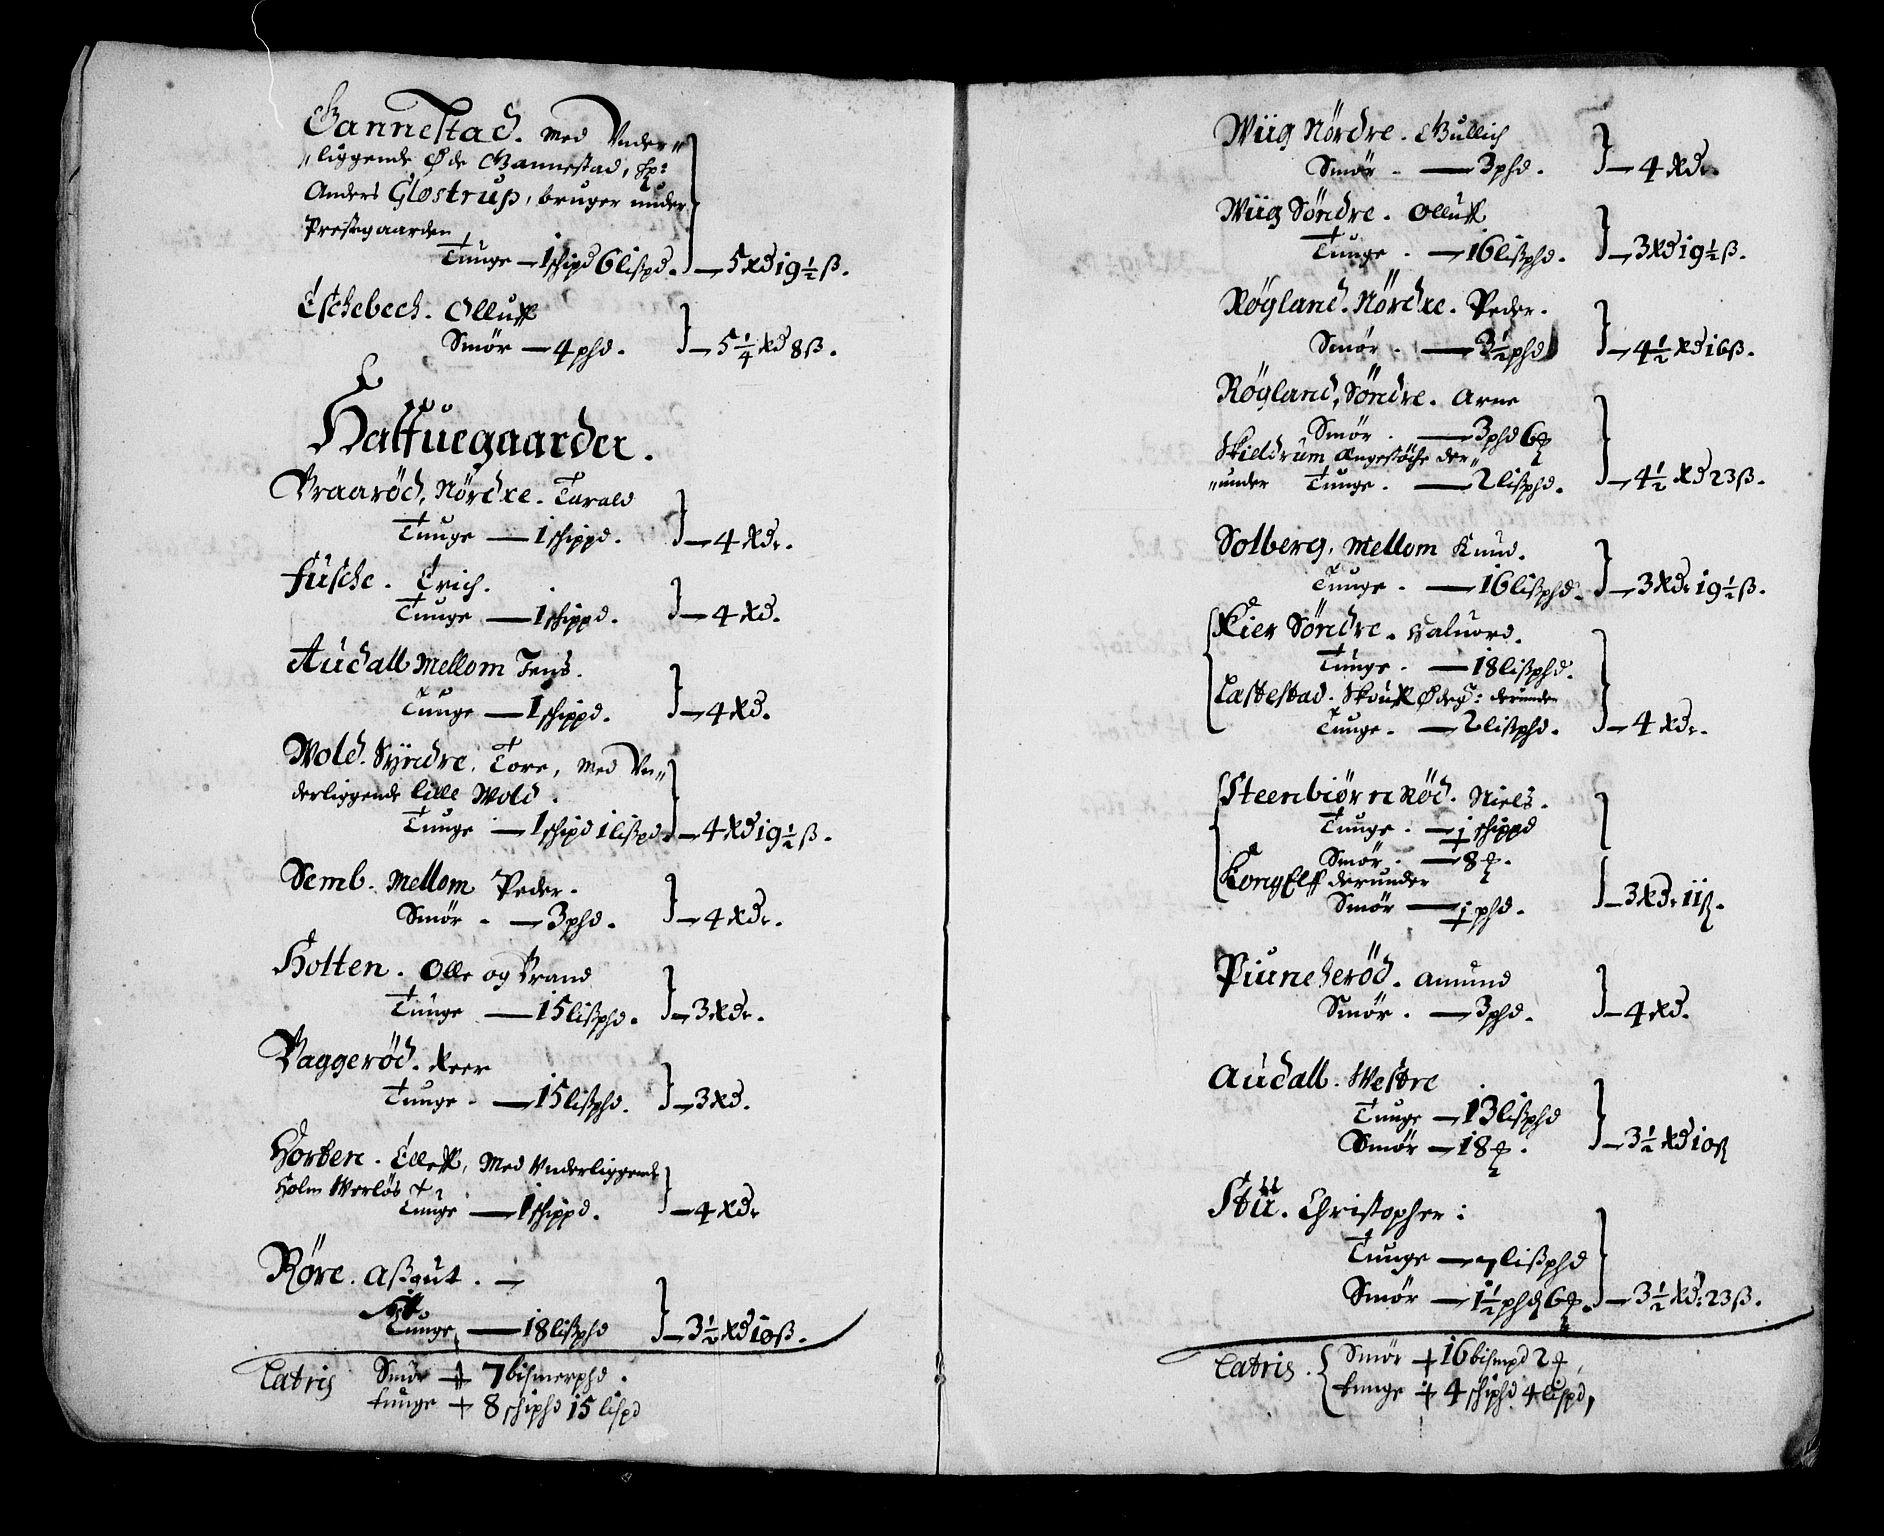 Gannestad. Med Vnder„
„liggende Øde Gannestad, Hr:
Anders Glostrup, bruger under
Prestegaarden
Tunge — 1 schipd 6 lißpd. — 5 Rd 19½ ß.
Eschebech. Olluff
Smör — 4 phd. — 5¼ Rd 8 ß.
Halfuegaarder.
Vraaröd, Nördre. Tarald
Tunge — 1 schippd. — 4 Rdr.
Fusche. Erich.
Tunge — 1 schippd. — 4 Rd.
Audall Mellom Jens.
Tunge — 1 schippd. — 4 Rd.
Wold. Syndre. Tore, Med Vn„
derliggende lille Wold.
Tunge — 1 schipd 1 lißpd. — 4 Rd 19½ ß.
Semb. Mellom Peder.
Smör — 3 phd. — 4 Rdr.
Holten. Olle og Brand
Tunge — 15 lißphd. — 3 Rdr.
Vaggeröd. Reer
Tunge — 15 lißphd. — 3 Rd.
Horten. Elleff, Med Vnderliggende
Holm Werlös
Tunge — 1 schippd. — 4 Rdr
Röre. Aßgut. —
Tunge — 18 lißphd — 3½ Rd 10 ß.
Latris Smör 7 bismerphd.
tunge 8 schiphd 15 lispd
Wiig Nördre. Gullich
Smör. — 3 phd. — 4 Rdr.
Wiig Söndre. Olluff
Tunge. — 16 lißphd. — 3 Rd 19½ ß.
Røgland. Nördre. Peder.
Smör. — 3½ phd — 4½ Rd 16 ß.
Røgland, Söndre. Arne
Smör. — 3 phd 6 ℔
Skieldrum Engestöche der„
„under Tunge. — 2 lißphd. — 4½ Rd 23 ß.
Solberg. Mellom Knud.
Tunge. — 16 lißphd. — 3 Rdr 19½ ß.
Kier Söndre. Haluord.
Tunge. — 18 lißphd.
Lastestad. Skouff Ødegd: derunder
Tunge. — 2 lißphd. — 4 Rdr.
Steenbiörnröd. Niels.
Tunge. — ½ schippd
Smör. — 8 ℔.
KongElff derunder
Smör — ½ phd. — 3 Rdr 11 ß.
Piunckeröd. Amund
Smör. — 3 phd. — 4 Rd.
Audall. Westre
Tunge — 13 lißphd
Smör — 18 ℔. — 3½ Rd 10 ß
Stü. Christopher:
Tunge — 7 lißphd
Smör — 1½ phd 6 ℔. — 3½ Rd: 23 ß.
Latris. Smör 16 bismpd 2 ℔,
tunge 4 schiphd 4 lispd,